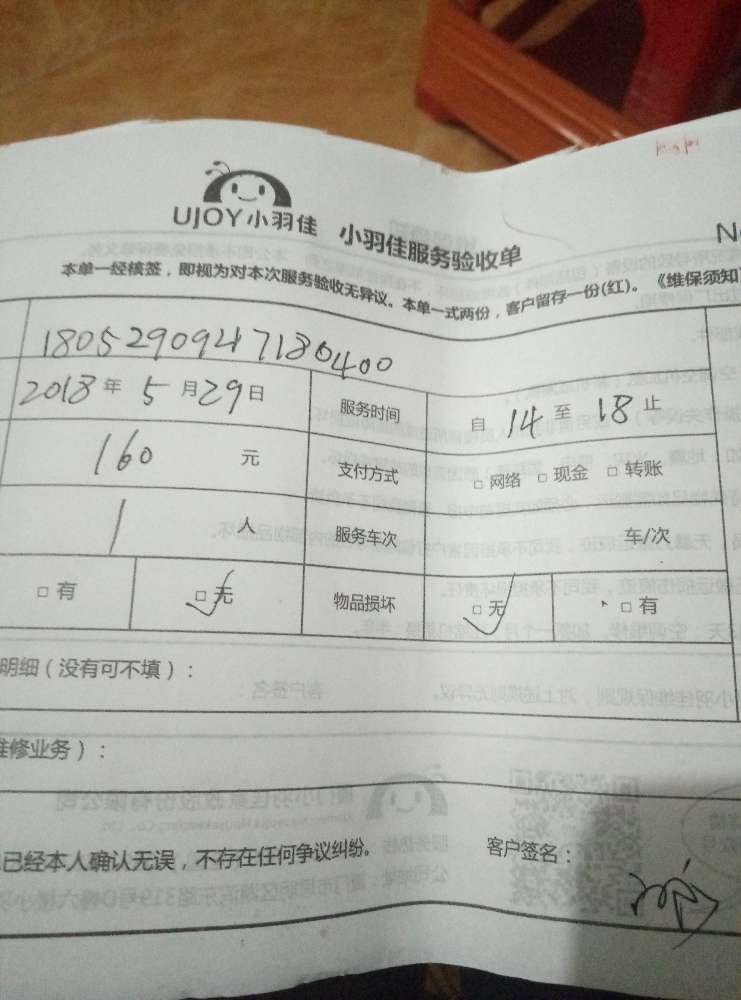 UJOY小羽佳 小羽佳服务验收单
N
本单一经核签，即视为对本次服务验收无异议。本单一式两份，客户留存一份(红)。《维保须知
1805290947180400
2018年5月29日 服务时间 自14至18止
160元 支付方式 □网络 □现金 □转账
1人 服务车次 车/次
□有 □无 物品损坏 □无 □有
明细（没有可不填）：
维修业务）：
已经本人确认无误，不存在任何争议纠纷。 客户签名：